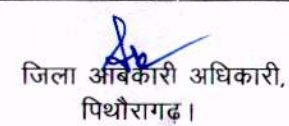 जिला आबकारी अधिकारी,
पिथौरागढ़।